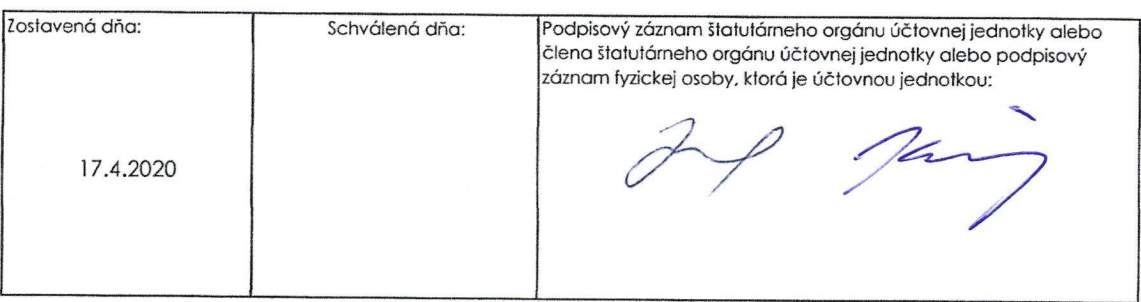 Zostavená dňa:
Schválená dňa:
Podpisový záznam štatutárneho orgánu účtovnej jednotky alebo
člena štatutárneho orgánu účtovnej jednotky alebo podpisový
záznam fyzickej osoby, ktorá je účtovnou jednotkou:
17.4.2020